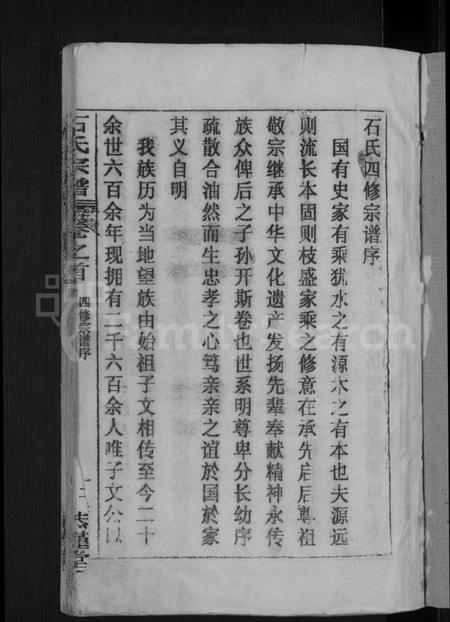 石氏四修宗谱序
国有史家有乘犹水之有源木之有本也夫源远
则流长本固则枝盛家乘之修意在承先启后尊祖
敬宗继承中华文化遗产发扬先辈奉献精神永传
族众俾后之子孙开斯卷也世系明尊卑分长幼序
疏散合油然而生忠孝之心笃亲亲之谊於国於家
其义自明
我族历为当地望族由始祖子文相传至今二十
余世六百余年现拥有二千六百余人唯子文公以
石氏宗谱 卷之首 四修宗谱序
FamilySearch